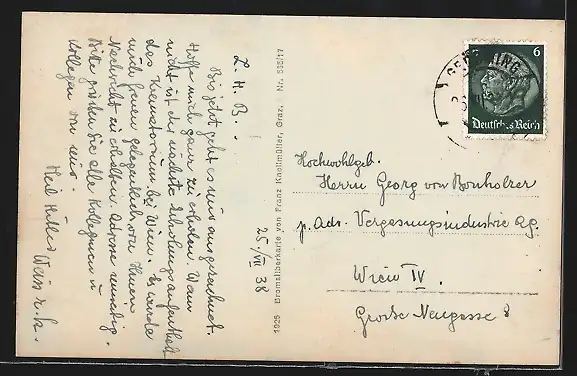 L. H. B.!
Bis jetzt geht es mir ausgezeichnet.
Hoffe mich ganz zu erholen. Wann
nicht ist der nächste Erholungsaufenthalt
das Krematorium bei Wien. Es würde
mich freuen gelegentlich von Ihnen
Nachricht zu erhalten. Adresse umseitig.
Bitte grüßen Sie alle Kolleginnen u.
Kollegen von mir.
Heil Hitler
25./VII 38
1925 Bromsilberkarte von Franz Knollmüller, Graz. Nr. 535/17
6
Deutsches Reich
Hochwohlgeb.
Herrn Georg von Bonholzer
p. Adr. Vergasungsindustrie Ag.
Wien IV.
Große Neugasse 8